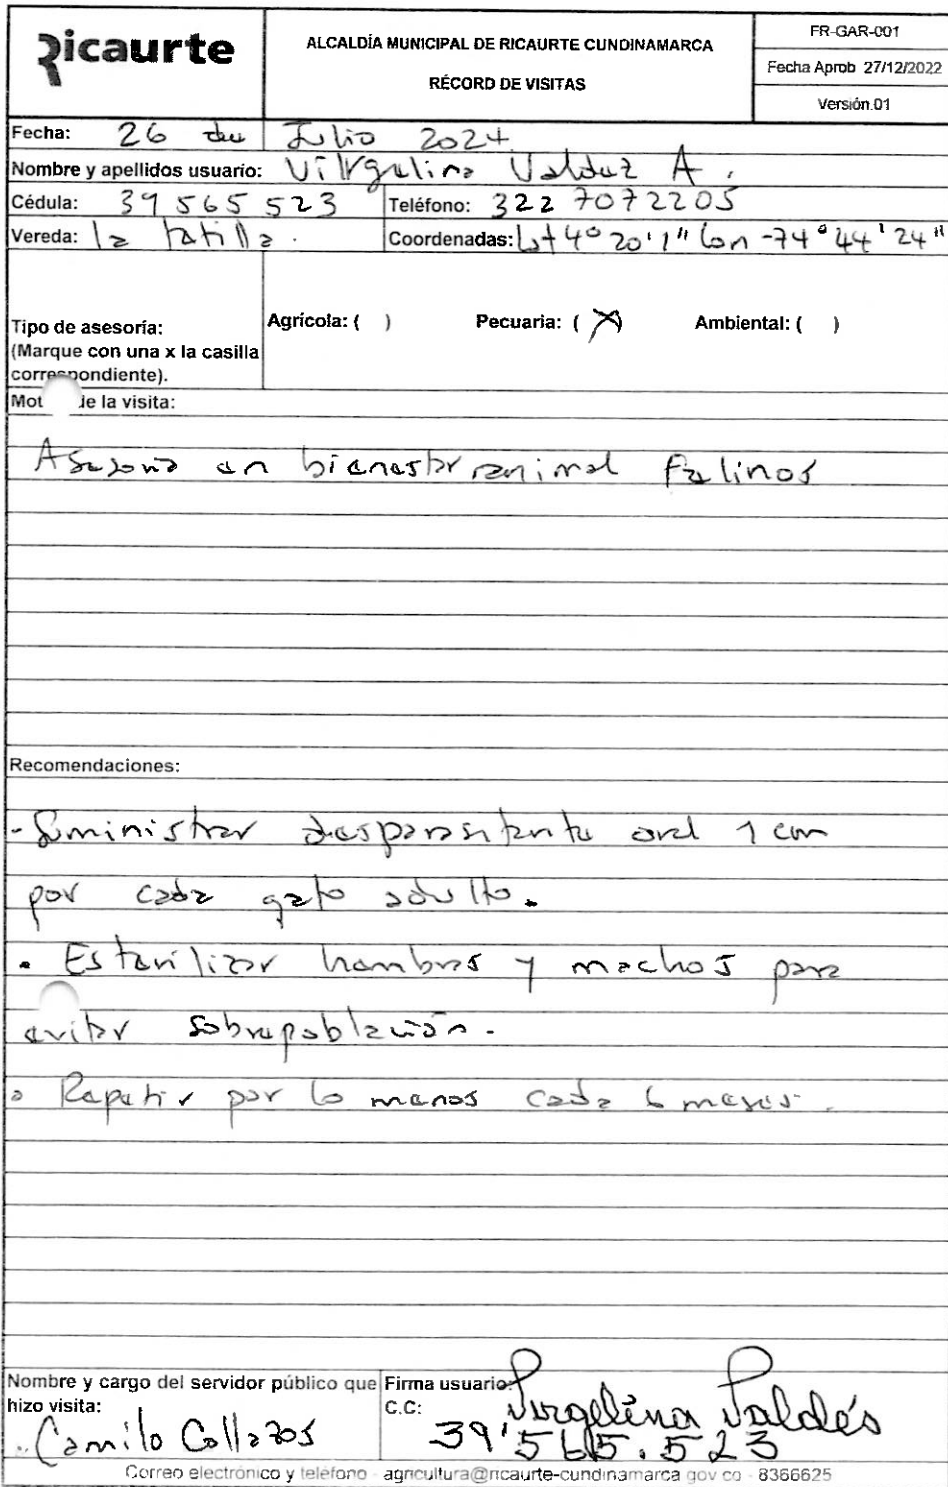 Ricaurte
ALCALDÍA MUNICIPAL DE RICAURTE CUNDINAMARCA
RÉCORD DE VISITAS
FR-GAR-001
Fecha Aprob 27/12/2022
Versión.01
Fecha: 26 de Julio 2024
Nombre y apellidos usuario: Virgelina Valdez A.
Cédula: 39 565 523 Teléfono: 322 7072205
Vereda: la
Coordenadas: Lat 4° 20' 1" Lon -74° 44' 24"
Tipo de asesoría:
(Marque con una x la casilla
correspondiente).
Agrícola: ( ) Pecuaria: ( X ) Ambiental: ( )
Mot de la visita:
Asesoria en bienestar animal Felinos
Recomendaciones:
- Suministrar desparasitante oral 1 cm
por cada gato adulto.
. Esterilizar hembras y machos para
evitar sobrepoblación.
. Repetir por lo menos cada 6 meses.
Nombre y cargo del servidor público que
hizo visita:
Camilo Collazos
Firma usuario: Virgelina Valdés
C.C: 39'565.523
Correo electrónico y teléfono - agricultura@ricaurte-cundinamarca.gov.co - 8366625